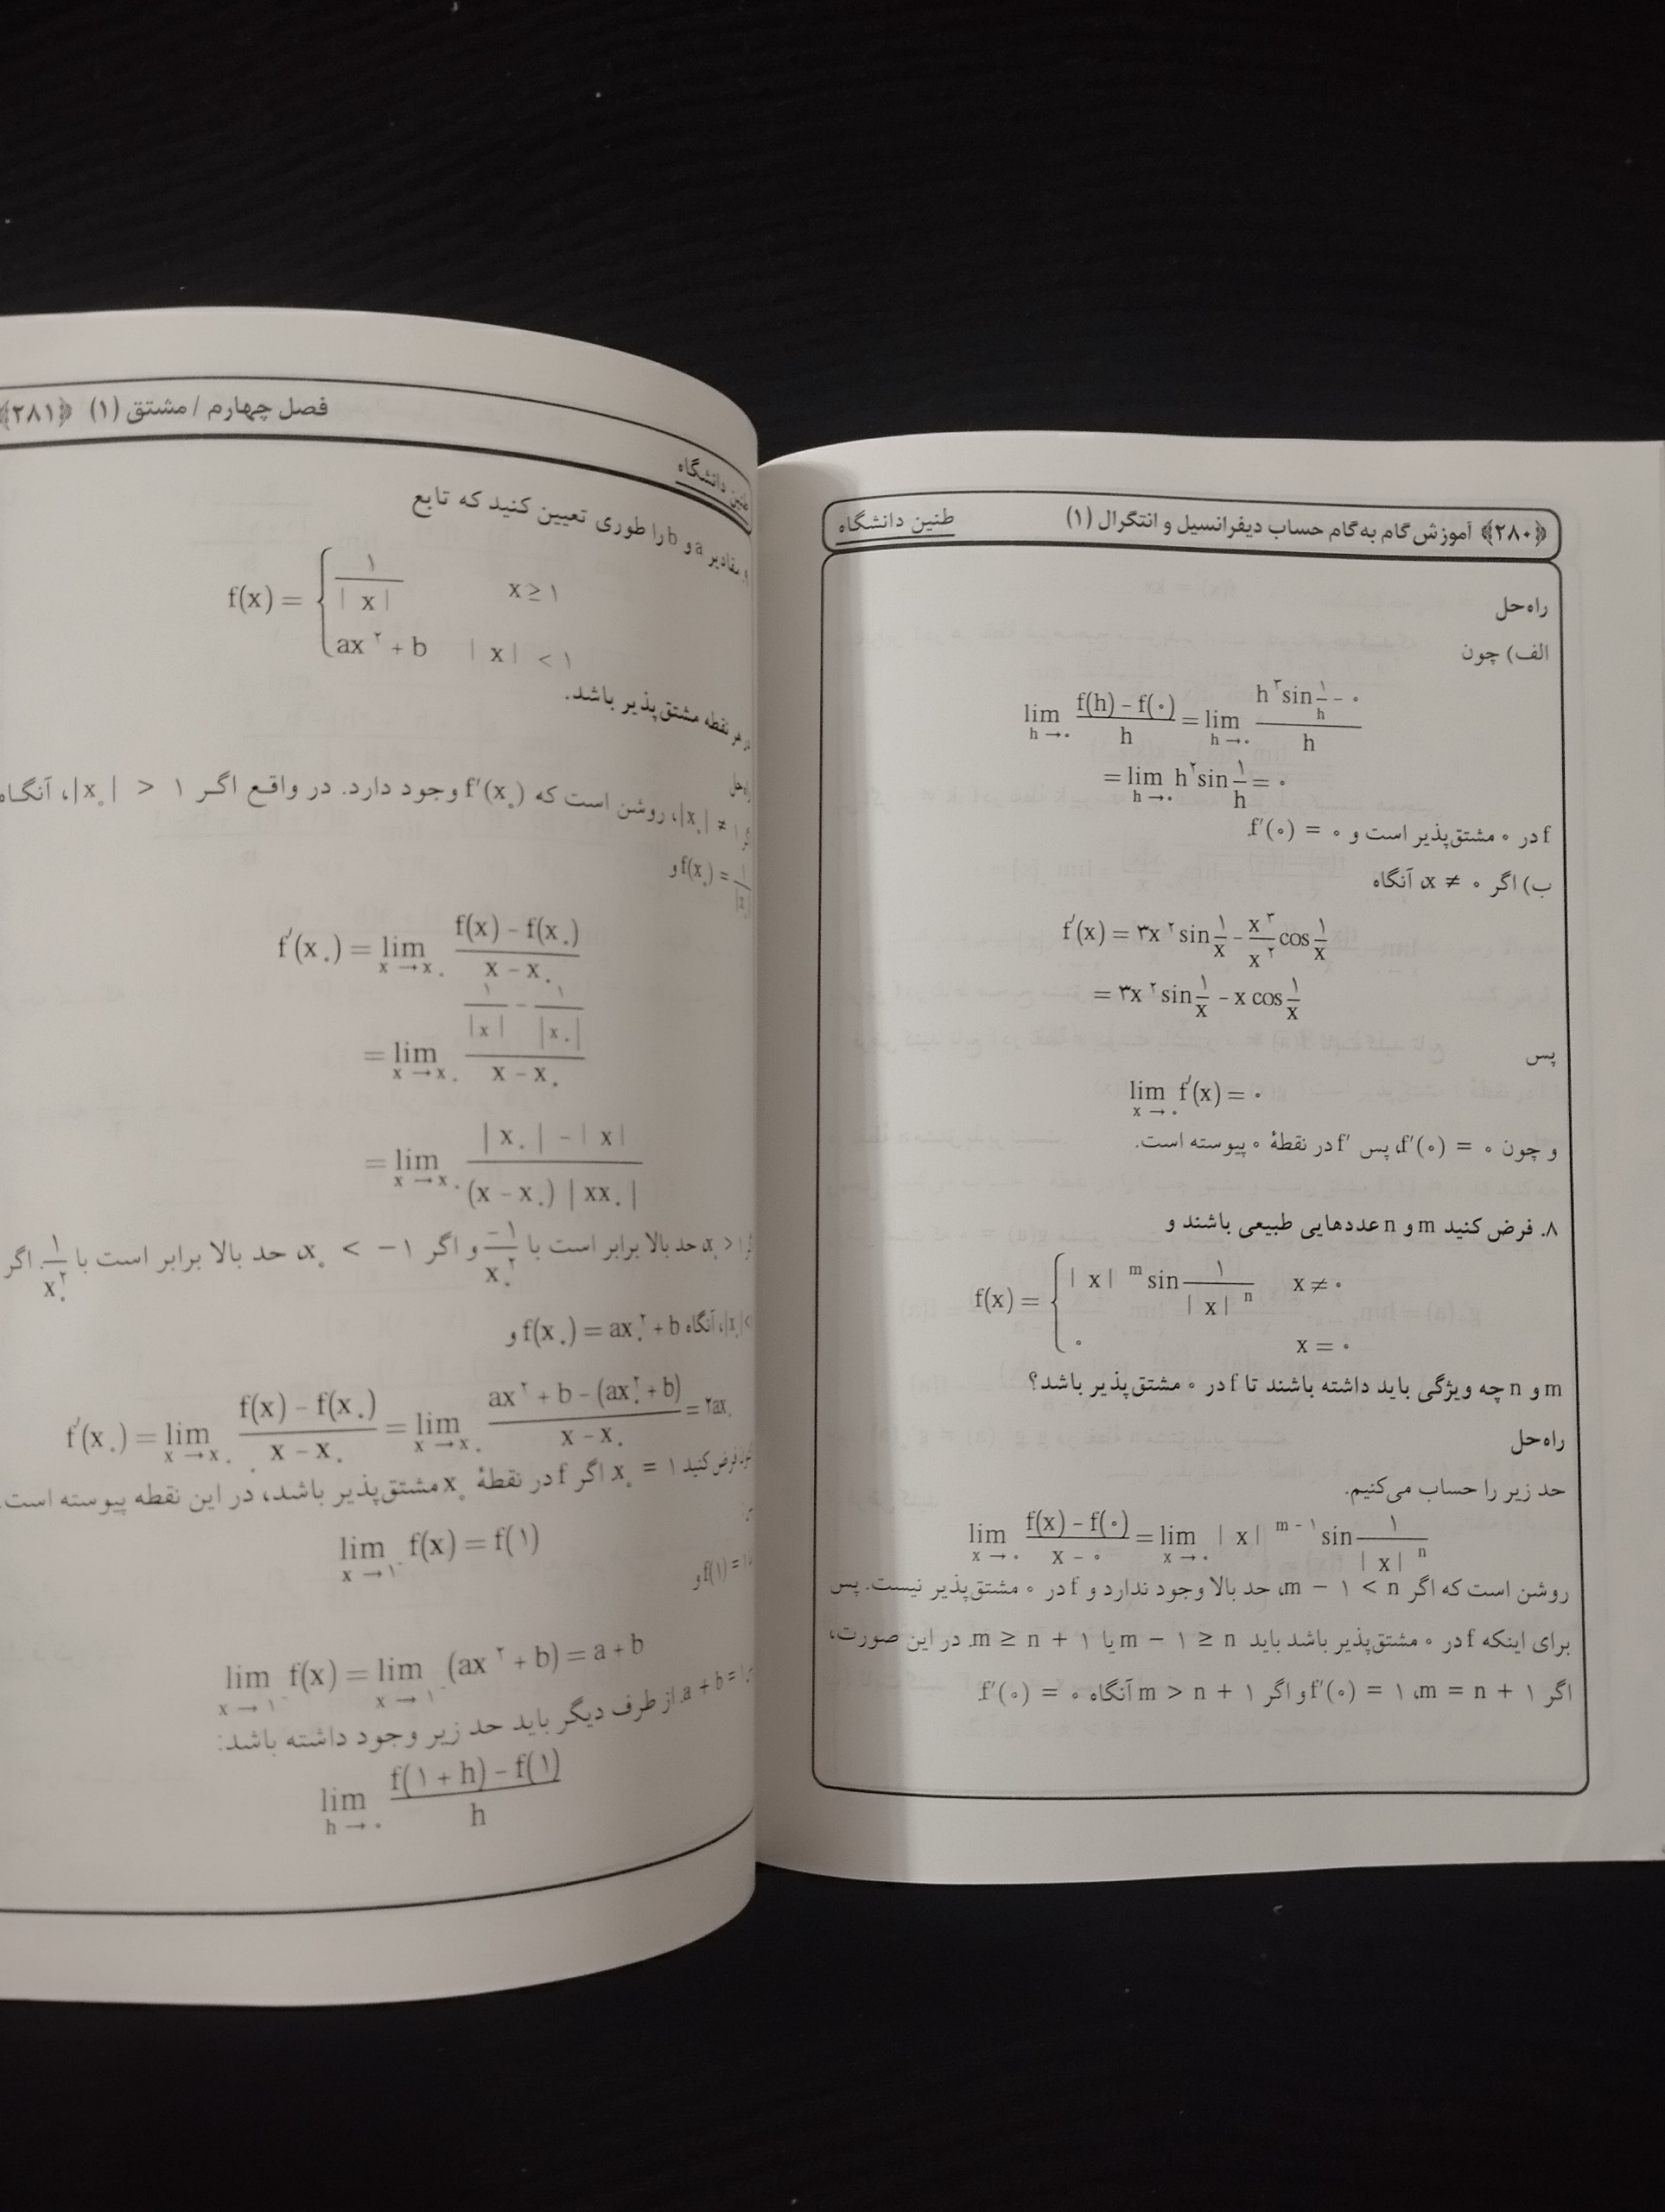 ﴿۲۸۰﴾ آموزش گام به گام حساب دیفرانسیل و انتگرال (۱) طنین دانشگاه
راه‌حل
الف) چون
lim h→۰ (f(h) - f(۰))/h = lim h→۰ (h^۳ sin ۱/h - ۰)/h
= lim h→۰ h^۲ sin ۱/h = ۰
f در ۰ مشتق‌پذیر است و f'(۰) = ۰.
ب) اگر x ≠ ۰، آنگاه
f'(x) = ۳x^۲ sin ۱/x - x^۳/x^۲ cos ۱/x
= ۳x^۲ sin ۱/x - x cos ۱/x
پس
lim x→۰ f'(x) = ۰
و چون f'(۰) = ۰، پس f' در نقطهٔ ۰ پیوسته است.
۸. فرض کنید m و n عددهایی طبیعی باشند و
f(x) = { |x|^m sin ۱/|x|^n x ≠ ۰
۰ x = ۰
m و n چه ویژگی باید داشته باشند تا f در ۰ مشتق‌پذیر باشد؟
راه‌حل
حد زیر را حساب می‌کنیم.
lim x→۰ (f(x) - f(۰))/(x - ۰) = lim x→۰ |x|^(m-۱) sin ۱/|x|^n
روشن است که اگر m - ۱ < n، حد بالا وجود ندارد و f در ۰ مشتق‌پذیر نیست. پس
برای اینکه f در ۰ مشتق‌پذیر باشد باید m - ۱ ≥ n یا m ≥ n + ۱. در این صورت،
اگر m = n + ۱، f'(۰) = ۱ و اگر m > n + ۱ آنگاه f'(۰) = ۰.
فصل چهارم / مشتق (۱) ﴿۲۸۱﴾
طنین دانشگاه
مقادیر a و b را طوری تعیین کنید که تابع
f(x) = { ۱/|x| x ≥ ۱
ax^۲ + b |x| < ۱
در هر نقطه مشتق‌پذیر باشد.
راه‌حل
|x₀| ≠ ۱، روشن است که f'(x₀) وجود دارد. در واقع اگر |x₀| > ۱، آنگاه
f(x₀) = ۱/|x₀| و
f'(x₀) = lim x→x₀ (f(x) - f(x₀))/(x - x₀)
= lim x→x₀ (۱/|x| - ۱/|x₀|)/(x - x₀)
= lim x→x₀ (|x₀| - |x|)/((x - x₀)|xx₀|)
x₀ > ۱، حد بالا برابر است با -۱/x₀^۲ و اگر x₀ < -۱، حد بالا برابر است با ۱/x₀^۲. اگر
آنگاه f(x₀) = ax₀^۲ + b و
f'(x₀) = lim x→x₀ (f(x) - f(x₀))/(x - x₀) = lim x→x₀ (ax^۲ + b - (ax₀^۲ + b))/(x - x₀) = ۲ax₀
فرض کنید x₀ = ۱. اگر f در نقطهٔ x₀ مشتق‌پذیر باشد، در این نقطه پیوسته است.
lim x→۱⁻ f(x) = f(۱)
f(۱) = ۱ و
lim x→۱⁻ f(x) = lim x→۱⁻ (ax^۲ + b) = a + b
a + b = ۱. از طرف دیگر باید حد زیر وجود داشته باشد:
lim h→۰ (f(۱ + h) - f(۱))/h